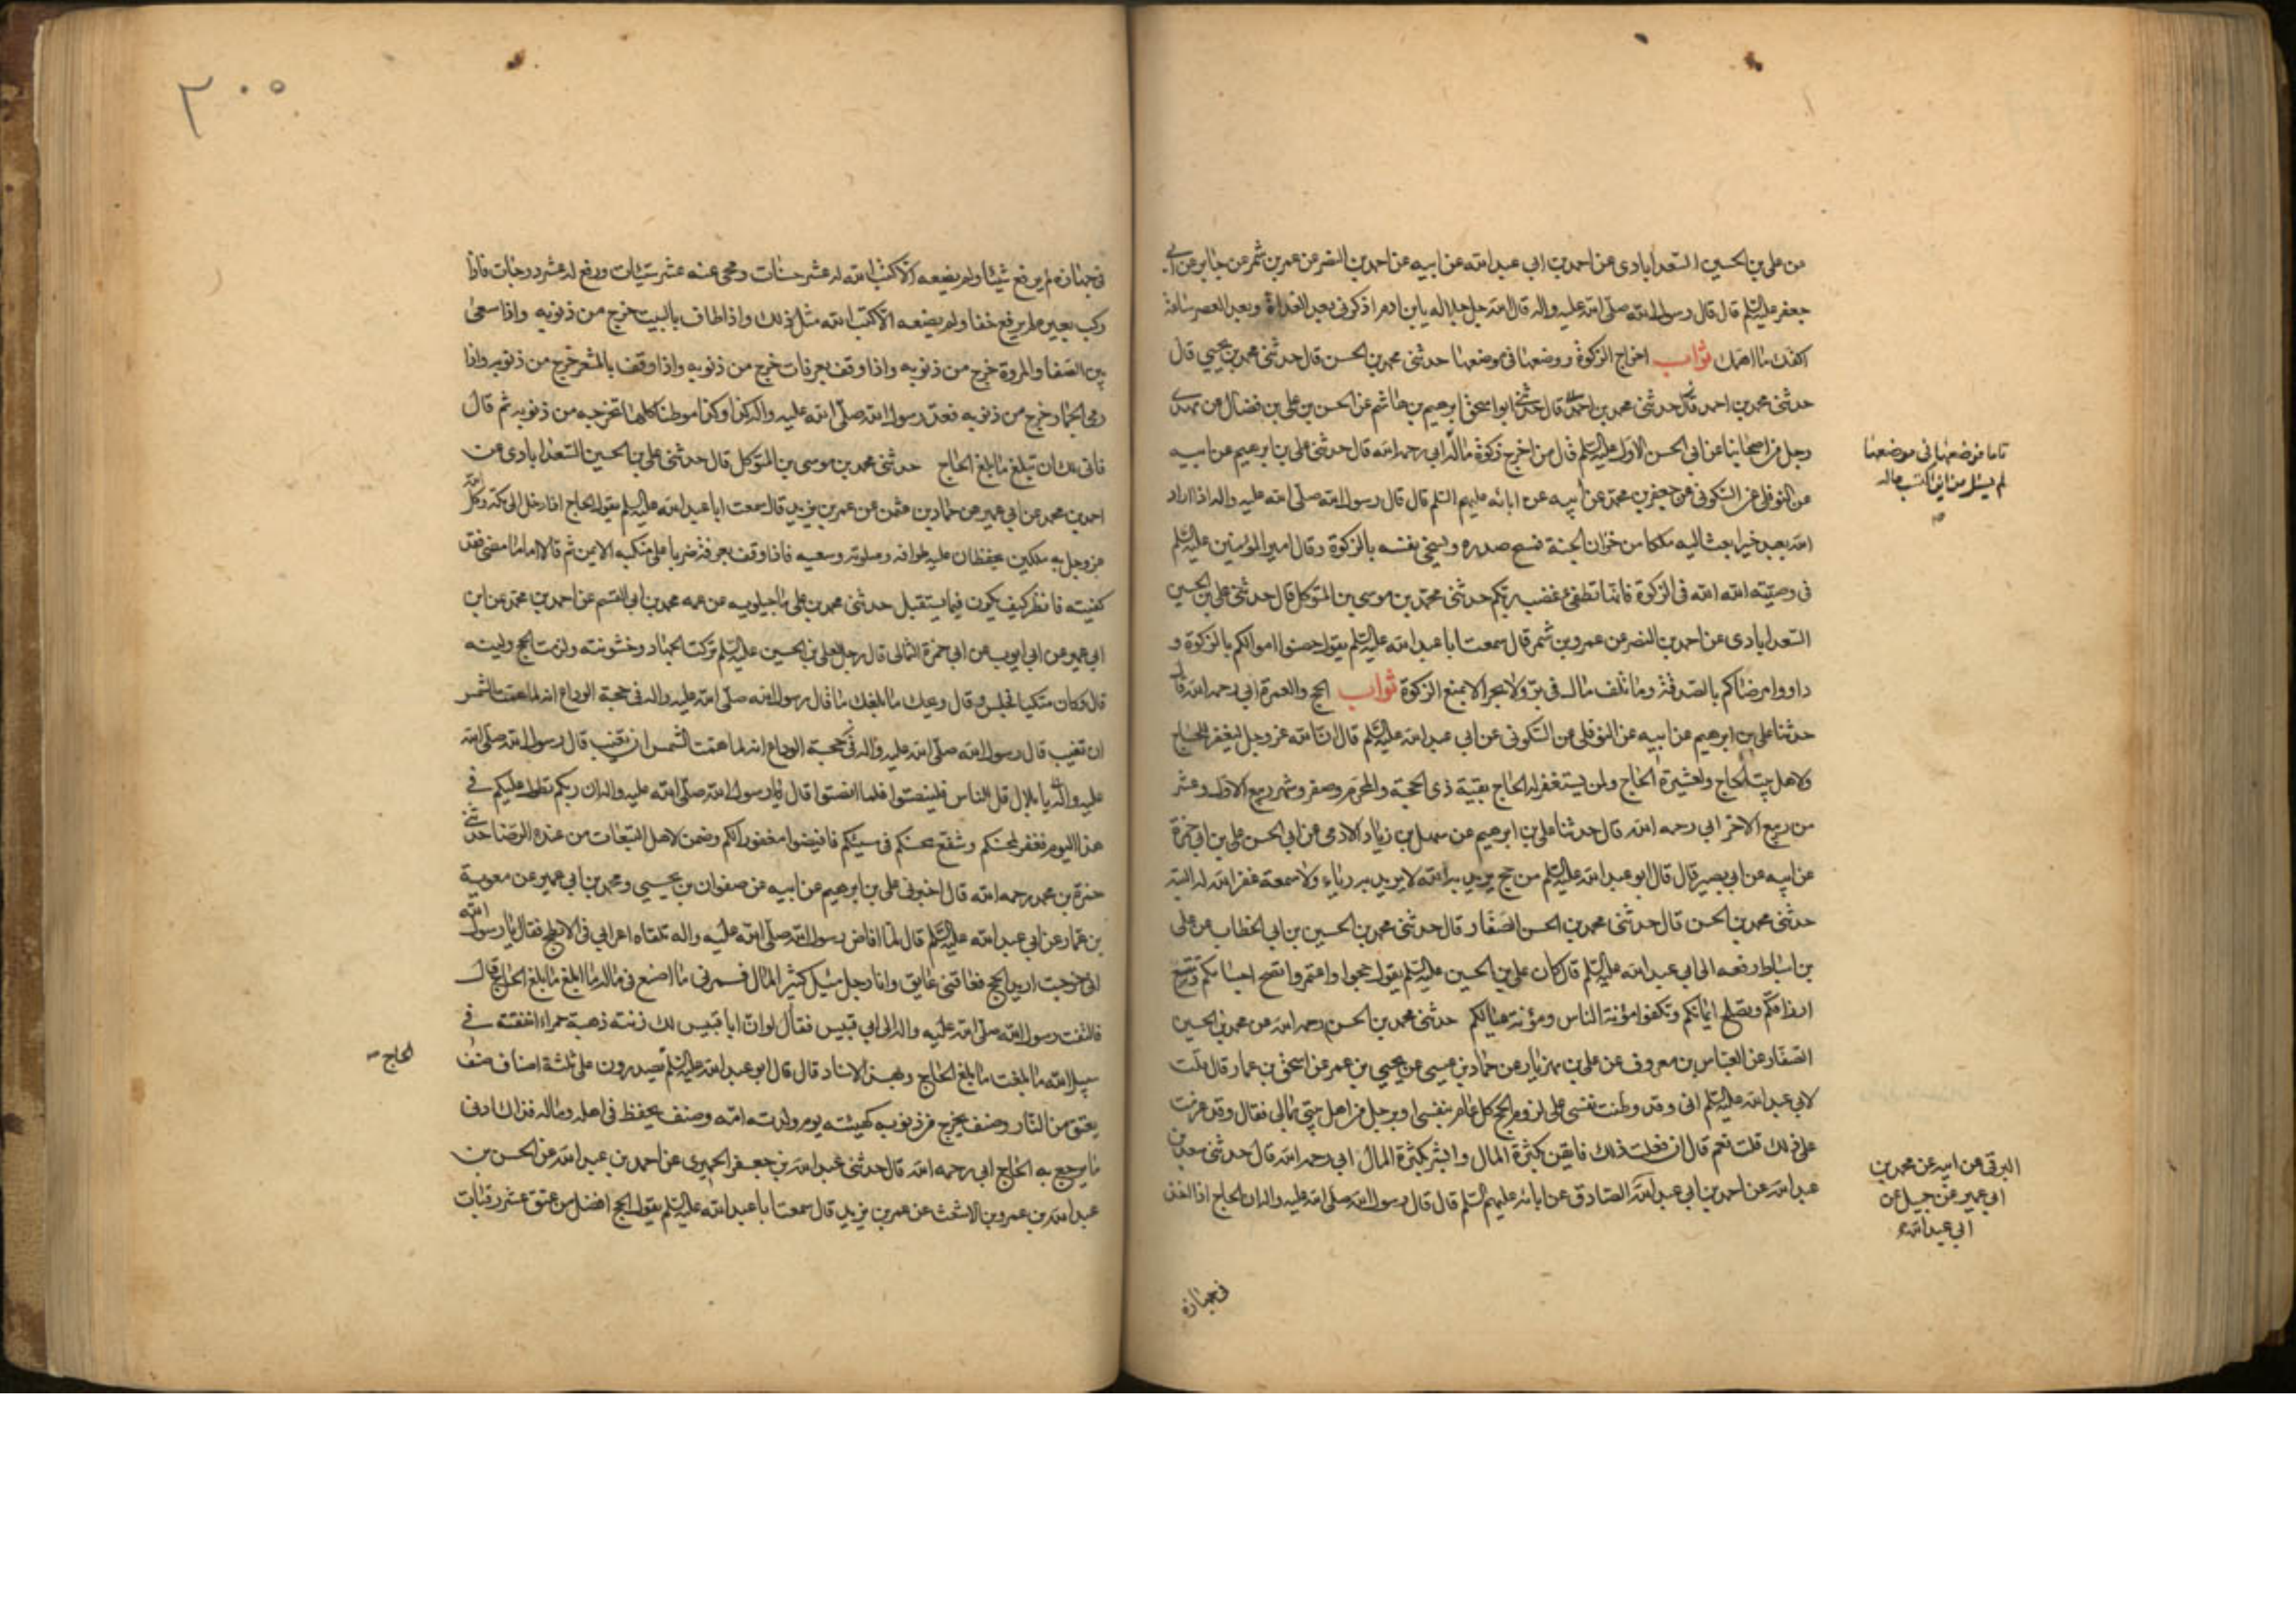 من علي بن الحسين السعدابادى عن احمد بن ابي عبد الله عن ابيه عن احمد بن النضر عن عمر بن شمر عن جابر عن ابي
جعفر عليه السلم قال قال رسول الله صلى الله عليه واله قال الله جل جلاله يا بن ادم اذكرنى بعد الغداة وبعد العصر ساعة
اكفك ما اهمك ثواب اخراج الزكوة ووضعها فى موضعها حدثنى محمد بن الحسن قال حدثنى محمد بن يحيى قال
حدثنى محمد بن احمد قال حدثنى محمد بن احمد قال حدثنى ابو اسحق ابرهيم بن هاشم عن الحسن بن على بن فضال عن مهدى
رجل من اصحابنا عن ابى الحسن الاول عليه السلم قال من اخرج زكوة ماله ابى رحمه الله قال حدثنى على بن ابرهيم عن ابيه
تاما فوضعها فى موضعها
لم يسئل من اين اكتسب ماله
صح
عن النوفلى عن السكونى عن جعفر بن محمد عن ابيه عن ابائه عليهم السلم قال قال رسول الله صلى الله عليه واله اذا اراد
الله بعبد خيرا بعث اليه ملكا من خزان الجنة فمسح صدره ويسخى نفسه بالزكوة وقال امير المؤمنين عليه السلم
فى وصيته الله الله فى الزكوة فانها تطفئ غضب ربكم حدثنى محمد بن موسى بن المتوكل قال حدثنى على بن الحسين
السعدابادى عن احمد بن النضر عن عمرو بن شمر قال سمعت ابا عبد الله عليه السلم يقول حصنوا اموالكم بالزكوة و
داووا مرضاكم بالصدقة وما تلف مال فى بر ولا بحر الا بمنع الزكوة ثواب الحج والعمرة ابى رحمه الله قال
حدثنا على بن ابرهيم عن ابيه عن النوفلى عن السكونى عن ابى عبد الله عليه السلم قال ان الله عز وجل ليغفر للحاج
ولاهل بيت الحاج ولعشيرة الحاج ولمن يستغفر له الحاج بقية ذى الحجة والمحرم وصفر وشهر ربيع الاول وعشر
من ربيع الاخر ابى رحمه الله قال حدثنا على بن ابرهيم عن سهل بن زياد الادمى عن ابى الحسن على بن ابى حمزة
عن ابيه عن ابى بصير قال قال ابو عبد الله عليه السلم من حج يريد به الله لا يريد به رياء ولا سمعة غفر الله له البتة
حدثنى محمد بن الحسن قال حدثنى محمد بن الحسن الصفار قال حدثنى محمد بن الحسين بن ابى الخطاب عن على
بن اسباط رفعه الى ابى عبد الله عليه السلم قال كان على بن الحسين عليه السلم يقول حجوا واعتمروا تصح اجسامكم وتتسع
ارزاقكم ويصلح ايمانكم وتكفوا مؤنة الناس ومؤنة عيالكم حدثنى محمد بن الحسن رحمه الله عن محمد بن الحسن
الصفار عن العباس بن معروف عن على بن مهزيار عن حماد بن عيسى عن يحيى بن عمر عن اسحق بن عمار قال قلت
لابى عبد الله عليه السلم انى وقد وطنت نفسى على لزوم الحج كل عام بنفسى او برجل من اهل بيتى بمالى فقال وقد عزمت
على ذلك قلت نعم قال ان فعلت ذلك فايقن بكثرة المال وابشر بكثرة المال ابى رحمه الله قال حدثنى سعد بن
عبد الله عن احمد بن ابى عبد الله الصادق عن ابائه عليهم السلم قال قال رسول الله صلى الله عليه واله ان الحاج اذا اخذ
البرقى عن ابيه عن محمد بن
ابى عمير عن جميل عن
ابى عبد الله ع
فى جهازه
٣٠٥
فى جهازه لم يرفع شيئا ولم يضعه الا كتب الله له عشر حسنات ومحى عنه عشر سيئات ورفع له عشر درجات فاذا
ركب بعيره لم يرفع خفا ولم يضعه الا كتب الله مثل ذلك واذا طاف بالبيت خرج من ذنوبه واذا سعى
بين الصفا والمروة خرج من ذنوبه واذا وقف بعرفات خرج من ذنوبه واذا وقف بالمشعر خرج من ذنوبه واذا
رمى الجمار خرج من ذنوبه فعد رسول الله صلى الله عليه واله كذا وكذا موطنا كلها تخرجه من ذنوبه ثم قال
فانى لك ان تبلغ ما بلغ الحاج حدثنى محمد بن موسى بن المتوكل قال حدثنى على بن الحسين السعدابادى عن
احمد بن محمد عن ابى عمير عن حماد بن عثمن عن عمر بن يزيد قال سمعت ابا عبد الله عليه السلم يقول الحاج اذا دخل الى مكة وكل الله
عز وجل به ملكين يحفظان عليه طوافه وصلوته وسعيه فاذا وقف بعرفة ضربا على منكبه الايمن ثم قالا اما ما مضى فقد
كفيته فانظر كيف يكون فيما يستقبل حدثنى محمد بن على ماجيلويه عن عمه محمد بن ابى القسم عن احمد بن محمد عن ابن
ابى عمير عن ابى ايوب عن ابى حمزة الثمالى قال رجل لعلى بن الحسين عليه السلم تركت الجهاد وخشونته ولزمت الحج ولينه
قال وكان متكيا فجلس وقال ويحك ما بلغك ما قال رسول الله صلى الله عليه واله فى حجة الوداع انه لما همت الشمس
ان تغيب قال رسول الله صلى الله عليه واله فى حجة الوداع انه لما همت الشمس ان تغيب قال رسول الله صلى الله
عليه واله يا بلال قل للناس فلينصتوا فلما انصتوا قال رسول الله صلى الله عليه واله ان ربكم تطول عليكم فى
هذا اليوم فغفر لمحسنكم وشفع محسنكم فى مسيئكم فافيضوا مغفورا لكم وضمن لاهل التبعات من عنده الرضا حدثنى
حمزة بن محمد رحمه الله قال اخبرنى على بن ابرهيم عن ابيه عن صفوان بن يحيى ومحمد بن ابى عمير عن معوية
بن عمار عن ابى عبد الله عليه السلم قال لما افاض رسول الله صلى الله عليه واله تلقاه اعرابى فى الابطح فقال يا رسول الله
انى خرجت اريد الحج فعاقنى عايق وانا رجل ميل كثير المال فمرنى ما اصنع فى مالى ما ابلغ ما بلغ الحاج قال
فالتفت رسول الله صلى الله عليه واله الى ابى قبيس فقال لو ان ابا قبيس لك زنته ذهبة حمراء انفقته فى
سبيل الله ما بلغت ما بلغ الحاج وبهذا الاسناد قال قال ابو عبد الله عليه السلم يصدرون على ثلثة اصناف صنف
الحاج صح
يعتق من النار وصنف يخرج من ذنوبه كهيئته يوم ولدته امه وصنف يحفظ فى اهله وماله فذاك ادنى
ما يرجع به الحاج ابى رحمه الله قال حدثنى عبد الله بن جعفر الحميرى عن احمد بن عبد الله عن الحسن بن
عبد الله بن عمرو بن الاشعث عن عمر بن يزيد قال سمعت ابا عبد الله عليه السلم يقول الحج افضل من عتق عشر رقبات